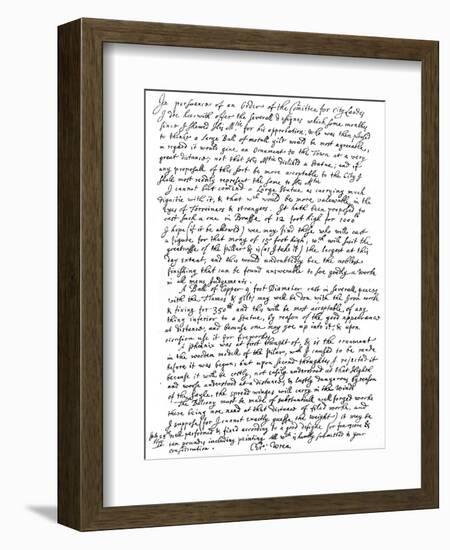 In persuance of an Order of the Comittee for City Landes
I doe heerwith offer the severall designes which some monthes
since I shewed His Mtie for his approbation, who was then pleased
to thinke a large Ball of metall gilt would be most agreeable,
in regard it would give an Ornament to the Town at a very
great distance; not that His Mtie disliked a Statue; and if
any proposall of this sort be more acceptable to the City I
shall most readily represent the same to His Mtie
I cannot but comend a Large Statue as carrying much
dignitie with it, & that wch would be more valewable in the
Eyes of Forreiners & strangers. It hath been proposed to
cast such a one in Brasse of 12 foot high for 1000lb
I hope (if it be allowed) wee may find those who will cast
a figure for that mony of 15 foot high, wch will suit the
greatnesse of the pillar & is (as I take it) the largest at this
day extant; and this would undoubtedly bee the noblest
finishing that can be found answerable to soe goodly a worke
in all mens Judgements.
A Ball of Copper 9 foot Diameter cast in severall peeces
with the Flames & gilt, may well be don with the Iron worke
& fixing for 350lb and this will be most acceptable, of any
thing inferior to a Statue, by reason of the good appearance
at distance, and because one may goe up into it; & upon
occasion use it for fireworkes.
A phœnix was at first thought of, & is the ornament
in the wooden modell of the pillar, wch I caused to be made
before it was begun; but upon second thoughtes I rejected it
because it will be costly, not easily understood at that Highth
and worse understood at a distance, & lastly dangerous by reason
of the sayle, the spread winges will carry in the winde
The Balcony must be made of substantiall well forged worke
there being noe need at that distance of filed worke, and
I suppose (for I cannot exactly guesse the weight) it may be
well performed & fixed according to a good designe for fourscore &
ten poundes including painting. All wch is humbly submitted to your
consideration.
July 28
Chr: Wren